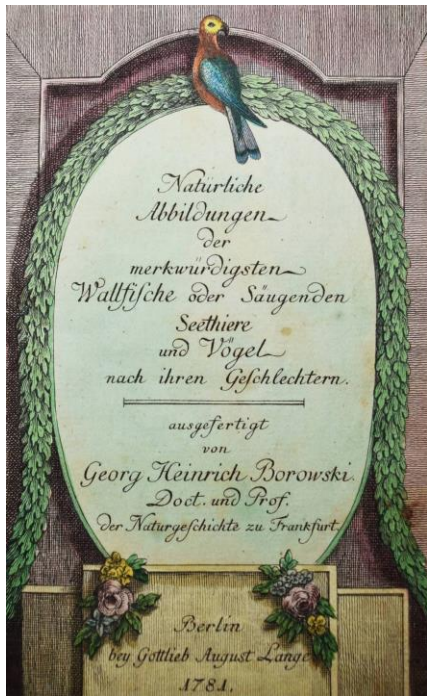 Natürliche
Abbildungen
der
merkwürdigsten
Wallfische oder Säugenden
Seethiere
und Vögel
nach ihren Geschlechtern.
ausgefertigt
von
Georg Heinrich Borowski.
Doct. und Prof.
der Naturgeschichte zu Frankfurt.
Berlin
bey Gottlieb August Lange
1781.